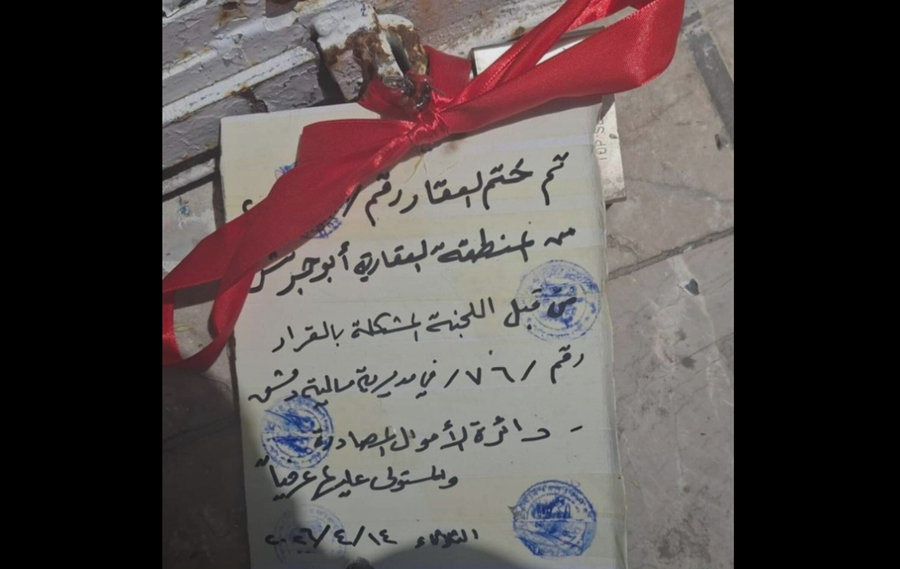 تم ختم العقار رقم /
من المنطقة العقارية أبو جرش
من قبل اللجنة المشكلة بالقرار
رقم /٧٦٠/ في مديرية مالية دمشق
- دائرة الأموال المصادرة
والمستولى عليها عرفياً
الثلاثاء ٢٠٢٦/٤/١٤
TOP S